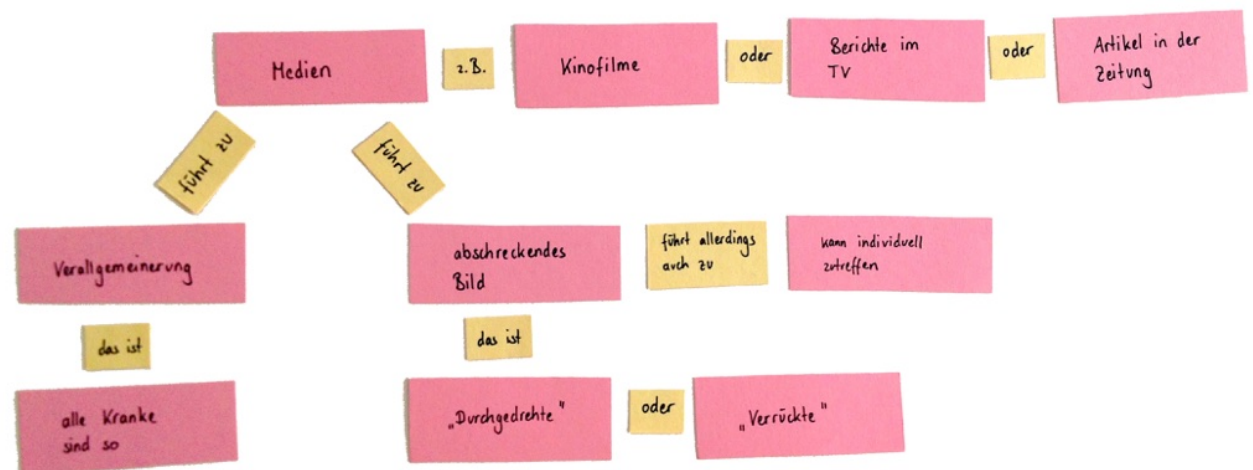 Medien
z.B.
Kinofilme
oder
Berichte im
TV
oder
Artikel in der
Zeitung
führt zu
führt zu
Verallgemeinerung
abschreckendes
Bild
führt allerdings
auch zu
kann individuell
zutreffen
das ist
das ist
alle Kranke
sind so
„Durchgedrehte"
oder
„Verrückte"